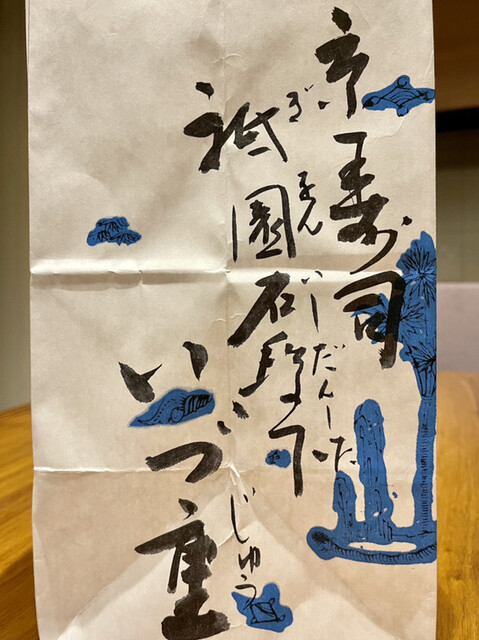 京寿司
祇園石段下
ぎおんいしだんした
いづ重
じゅう